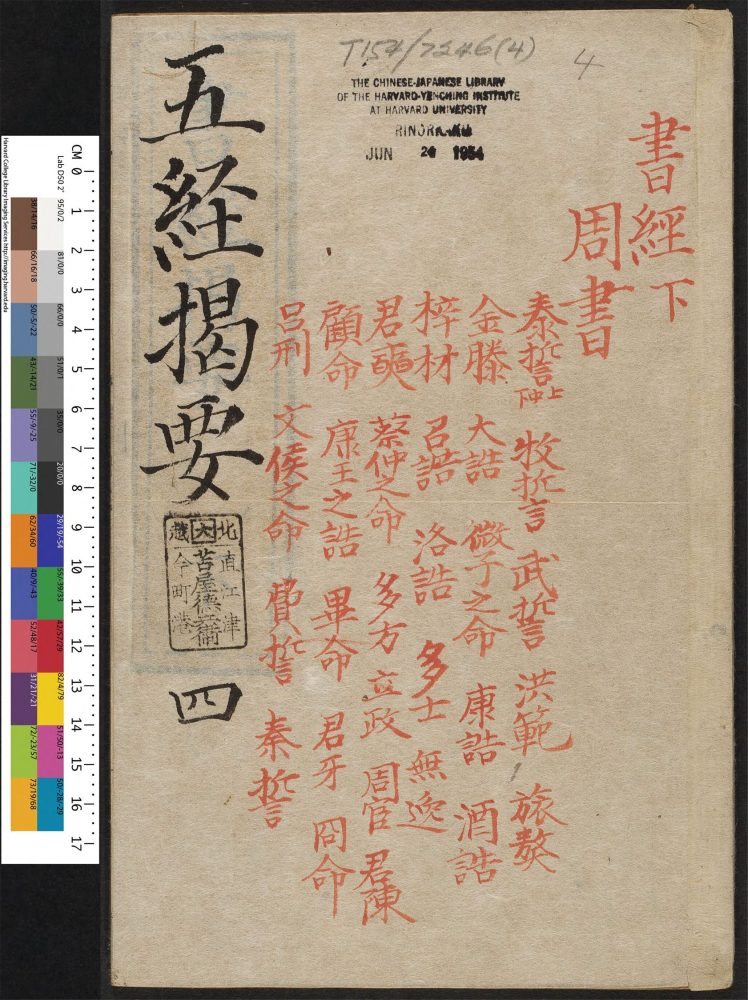 T154/7246(4)
4
THE CHINESE-JAPANESE LIBRARY
OF THE HARVARD-YENCHING INSTITUTE
AT HARVARD UNIVERSITY
JUN 20 1954
書經下
周書
泰誓 上中下 牧誓 武誓 洪範 旅獒
金滕 大誥 微子之命 康誥 酒誥
梓材 召誥 洛誥 多士 無逸
君奭 蔡仲之命 多方 立政 周官 君陳
顧命 康王之誥 畢命 君牙 冏命
呂刑 文侯之命 費誓 秦誓
五経揭要 四
北 大 越
直江津
苫屋德
今町港
CM 0 1 2 3 4 5 6 7 8 9 10 11 12 13 14 15 16 17
Lab D50 2° 95/0/2 81/0/0 66/0/0 51/0/1 35/0/0 20/0/0 29/19/-54 55/-39/33 42/57/29 82/4/79 51/50/-13 50/-28/-29
38/14/16 66/16/18 50/-5/-22 43/-14/21 55/-9/-25 71/-32/0 62/34/60 40/9/-43 52/48/17 31/21/-21 72/-23/57 73/19/68
Harvard College Library Imaging Services http://imaging.harvard.edu